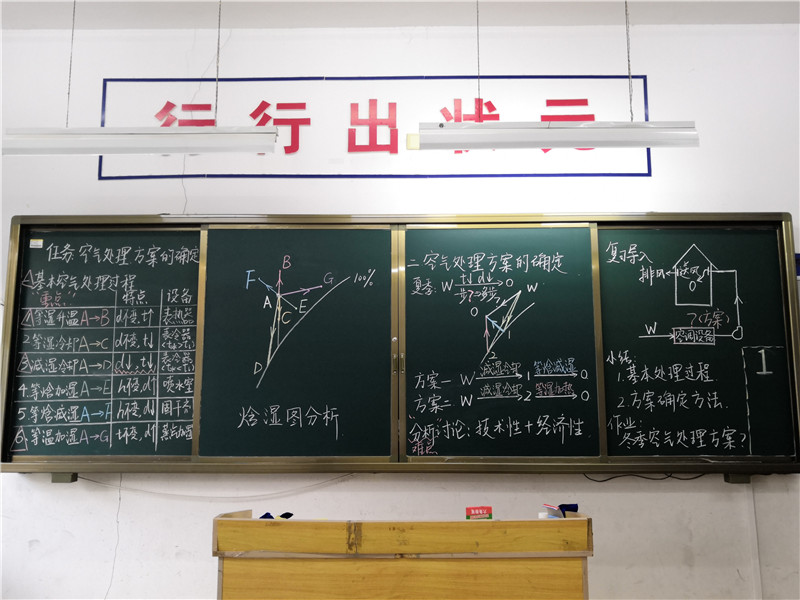 行行出状元
任务:空气处理方案的确定
一基本空气处理过程
"重点"
特点 设备
1.等湿升温A→B d不变,t↑ 表热器
2.等湿冷却A→C d不变,t↓ 表冷器
3.减湿冷却A→D d↓,t↓ 表冷器
4.等焓加湿A→E h不变,d↑ 喷水室
5.等焓减湿A→F h不变,d↓ 固干剂
6.等温加湿A→G t不变,d↑ 蒸汽加湿
B
F G 100%
A E
C
D
焓湿图分析
二空气处理方案的确定
夏季: W t↓ d↓ O
W
O
1
2
方案一 W 减湿冷却 1 等焓减湿 O
方案二 W 减湿冷却 2 等湿加热 O
"分析讨论:技术性+经济性
难点
复习导入
排风 送风
O
?(方案)
W 空调设备
小结:
1.基本处理过程
2.方案确定方法.
作业:
冬季空气处理方案?
1